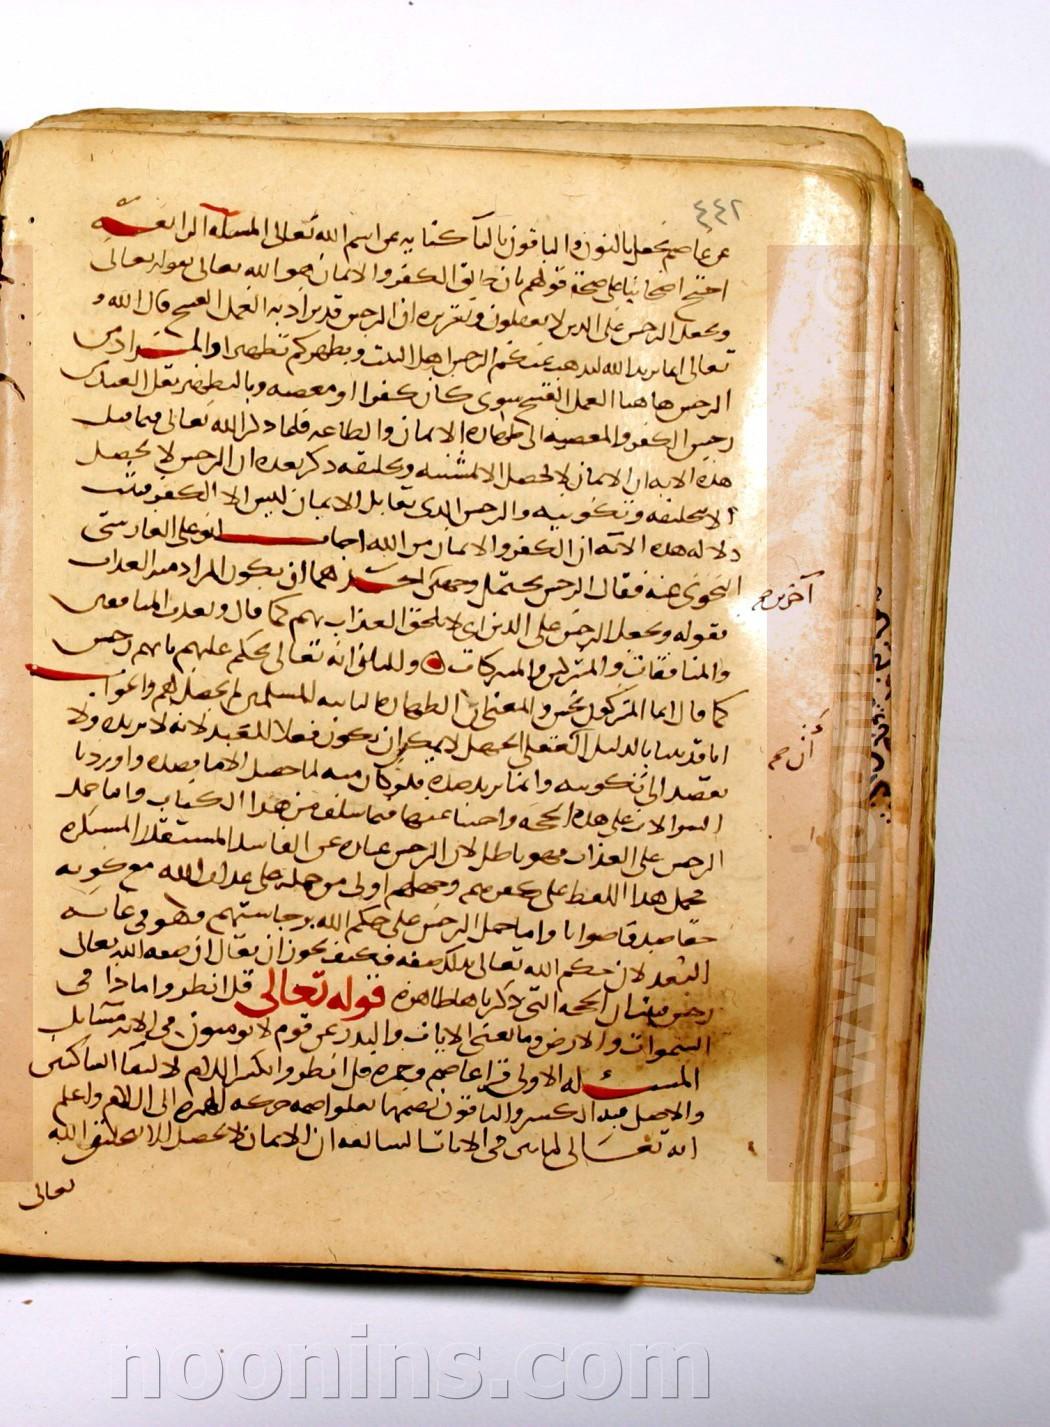 ٤٤٢
عن عاصم نجعل بالنون والباقون بالياء كناية عن اسم الله تعالى المسئلة الرابعة
احتج اصحابنا على صحة قولهم بان خالق الكفر والايمان هو الله تعالى بقوله تعالى
ويجعل الرجس على الذين لا يعقلون وتقريره ان الرجس قد يراد به العمل القبيح قال الله
تعالى انما يريد الله ليذهب عنكم الرجس اهل البيت ويطهركم تطهيرا والمراد من
الرجس هاهنا العمل القبيح سوى كان كفرا او معصية وبالتطهير نقل العبد من
رجس الكفر والمعصية الى طهارة الايمان والطاعة فلما ذكر الله تعالى فيما قبل
هذه الاية ان الايمان لا يحصل الا بمشيئته وتخليقه ذكر بعده ان الرجس لا يحصل
الا بتخليقه وتكوينه والرجس الذي يقابل الايمان ليس الا الكفر فثبت
دلالة هذه الآية ان الكفر والايمان من الله اجاب ابو على الفارسي
النحوى عنه فقال الرجس يحتمل وجهين احدهما ان يكون المراد منه العذاب
آخرين صح
بقوله ويجعل الرجس على الذين اى لا يلحق العذاب بهم كما قال ويعذب المنافقين
والمنافقات والمشركين والمشركات والثاني انه تعالى يحكم عليهم بانهم رجس
كما قال انما المشركون نجس والمعنى ان الطهارة الثابتة للمسلمين لم تحصل لهم والجواب
انا قد بينا بالدليل العقلي الجهل لا يمكن ان يكون فعلا للعبد لانه لا يريده ولا
أن صح
يقصد الى تكوينه وانما يريد ضده فلو كان منه لما حصل الا ما قصده واوردنا
السوالات على هذه الحجة واجبنا عنها فيما سلف من هذا الكتاب واما حمل
الرجس على العذاب فهو باطل لان الرجس عبارة عن الفاسد المستقذر المستكره
فحمل هذا اللفظ على كفرهم وجهلهم اولى من حمله على عذاب الله مع كونه
حقا صدقا صوابا واما حمل الرجس على حكم الله برجاستهم فهو في غاية
البعد لان حكم الله تعالى بذلك صفته فكيف يجوز ان يقال ان صفة الله تعالى
رجس فثبت ان الحجة التي ذكرناها ظاهرة قوله تعالى قل انظروا ماذا في
السموات والارض وما تغني الايات والنذر عن قوم لا يومنون في الاية مسايل
المسئلة الاولى قرا عاصم وحمزة قل انظروا بكسر اللام لالتقا الساكنين
والاصل فيه الكسر والباقون بضمها نقلوا ضمة حركة الهمزة الى اللام واعلم
انه تعالى لما بين في الايات السالفة ان الايمان لا يحصل الا بتخليق الله
تعالى
noonins.com